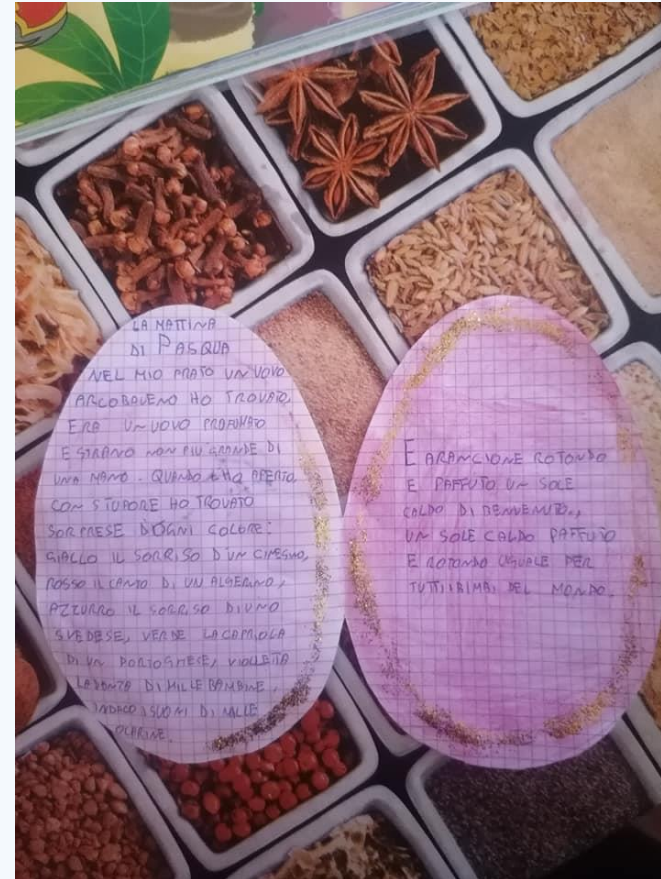 LA MATTINA
DI PASQUA
NEL MIO PRATO UN UOVO
ARCOBALENO HO TROVATO,
ERA UN UOVO PROFUMATO
E STRANO NON PIÙ GRANDE DI
UNA MANO. QUANDO L'HO APERTO
CON STUPORE HO TROVATO
SORPRESE D'OGNI COLORE:
GIALLO IL SORRISO D'UN CINESINO,
ROSSO IL CANTO DI UN ALGERINO,
AZZURRO IL SORRISO DI UNO
SVEDESE, VERDE LA CAPRIOLA
DI UN PORTOGHESE, VIOLETTA
LA DANZA DI MILLE BAMBINE,
INDACO I SUONI DI MILLE
OCARINE.
E ARANCIONE ROTONDO
E PAFFUTO UN SOLE
CALDO DI BENVENUTO,
UN SOLE CALDO PAFFUTO
E ROTONDO UGUALE PER
TUTTI I BIMBI DEL MONDO.